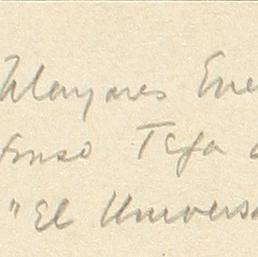 Mayores Ene
fonso Teja
"El Universa